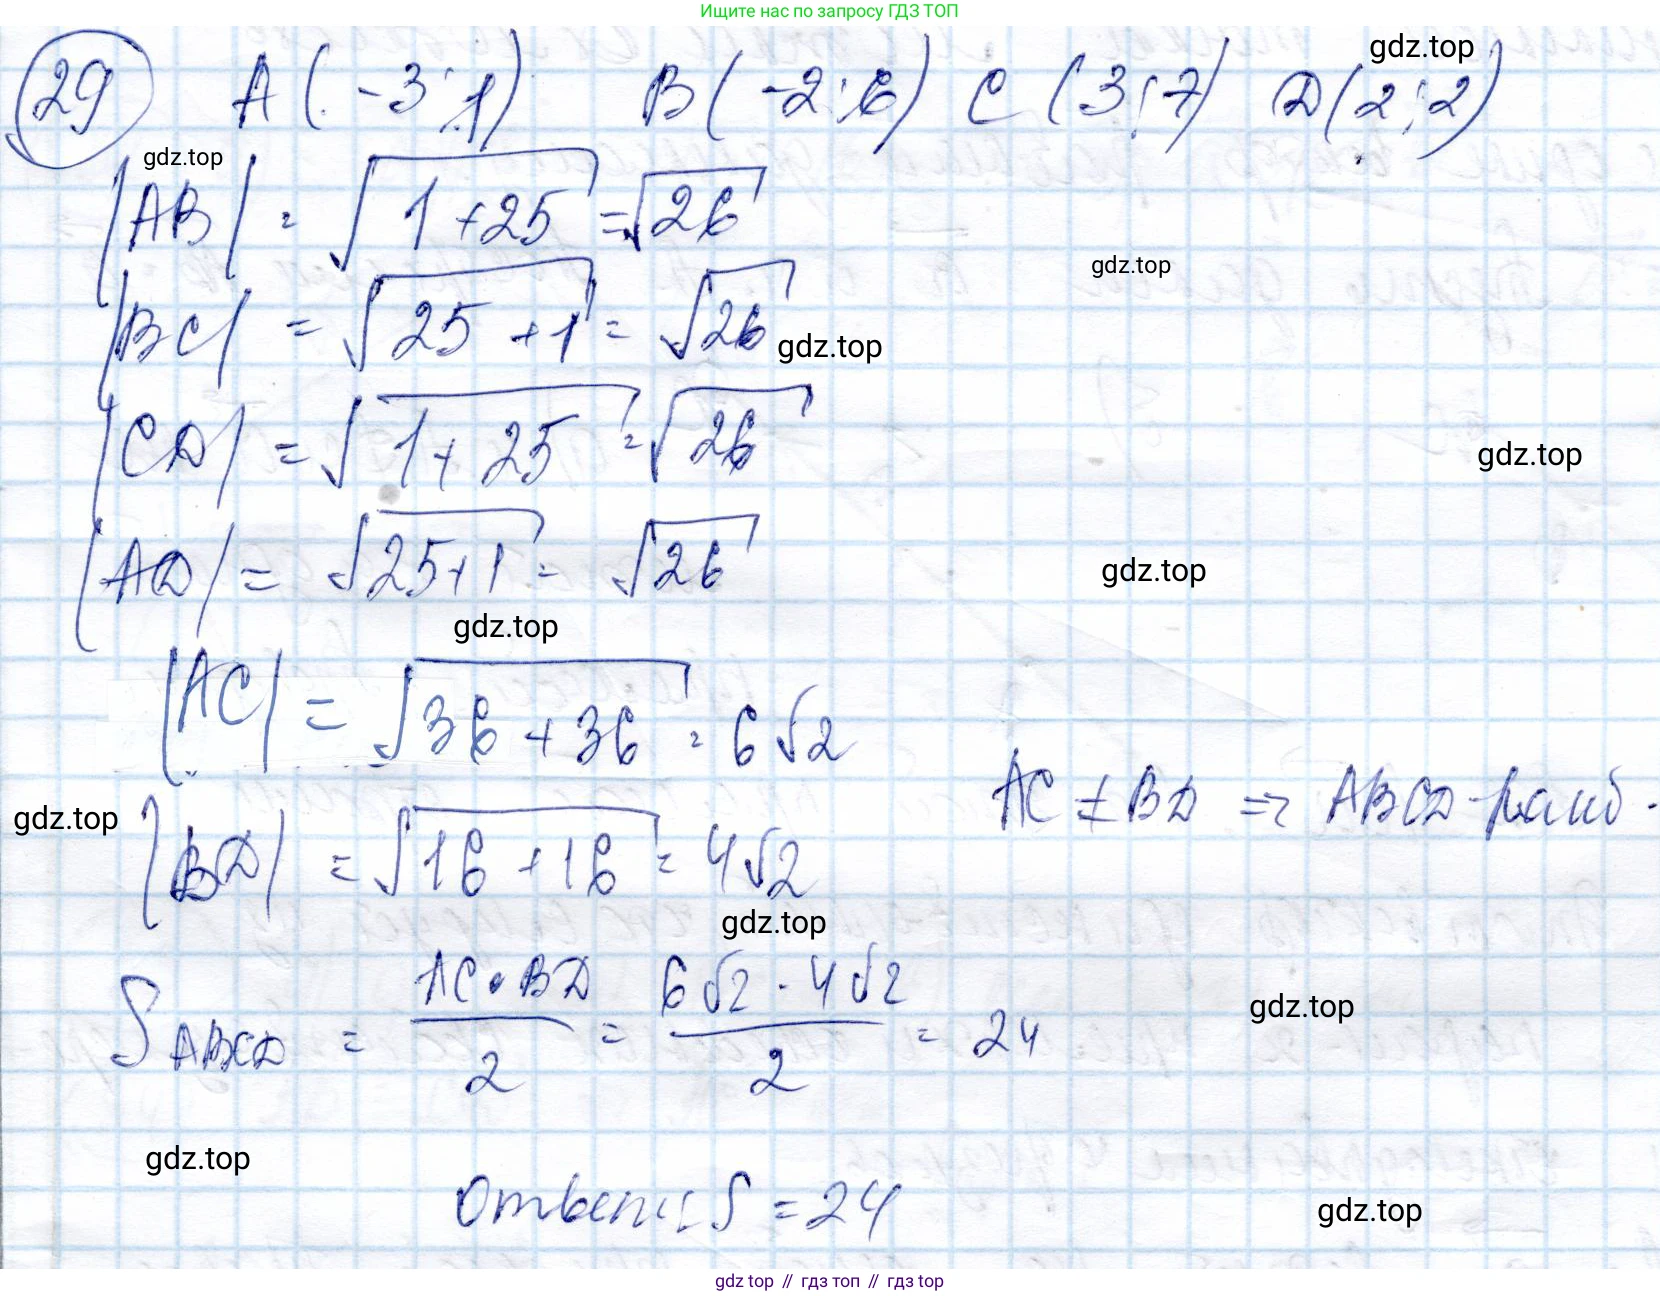 Ищите нас по запросу ГДЗ ТОП
29 A(-3;1) B(-2;6) C(3;7) D(2;2)
gdz.top
gdz.top
|AB| = √(1+25) = √26
gdz.top
|BC| = √(25+1) = √26
gdz.top
|CD| = √(1+25) = √26
gdz.top
|AD| = √(25+1) = √26
gdz.top
gdz.top
|AC| = √(36+36) = 6√2
AC ≠ BD => ABCD - ромб.
gdz.top
|BD| = √(16+16) = 4√2
gdz.top
S ABCD = AC·BD/2 = 6√2·4√2/2 = 24
gdz.top
gdz.top
Ответ: S = 24
gdz.top
gdz top // гдз топ // gdz top